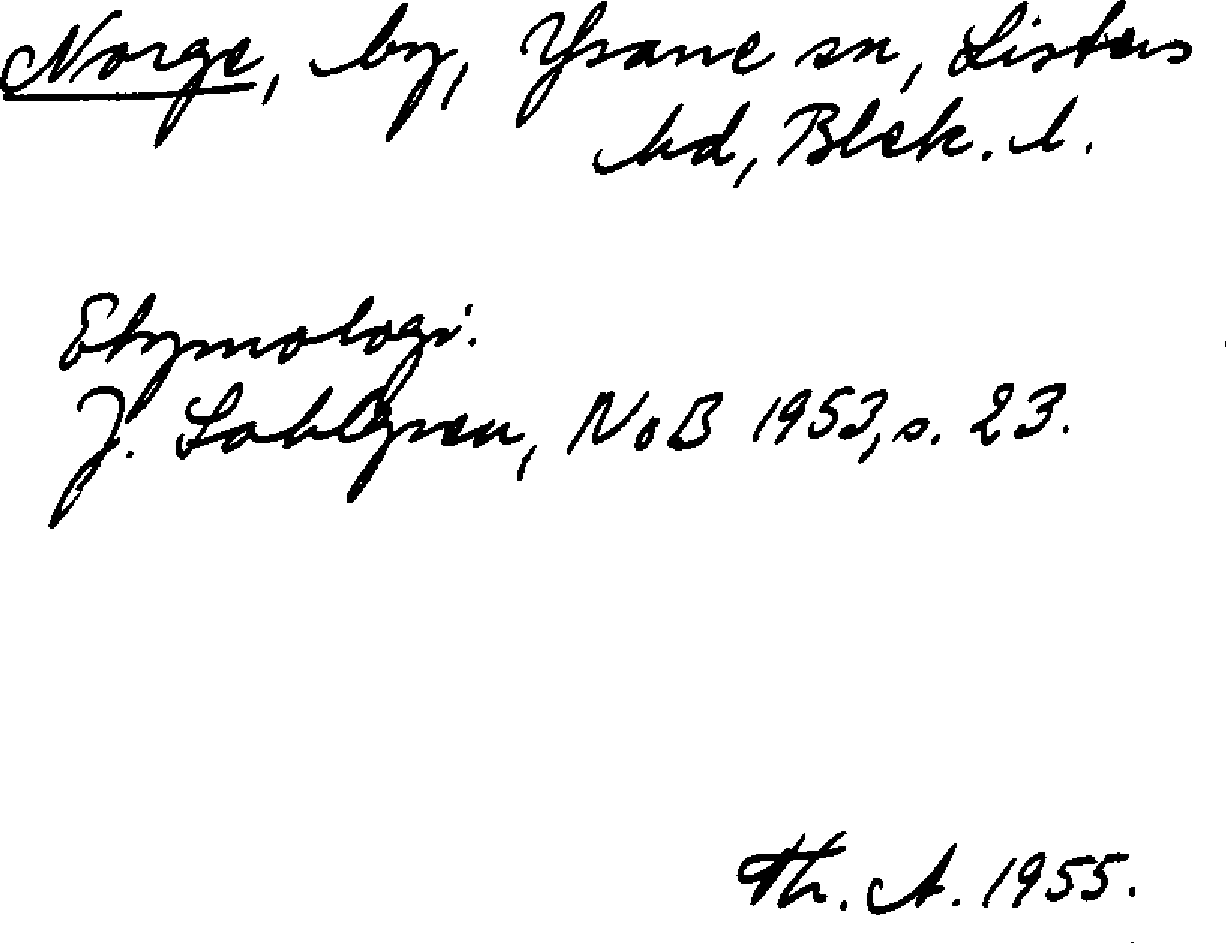 Norge, by, Ysane sn, Listers
hd, Blek. l.
Etymologi.
J. Sahlgren, NoB 1953, s. 23.
Th. A. 1955.